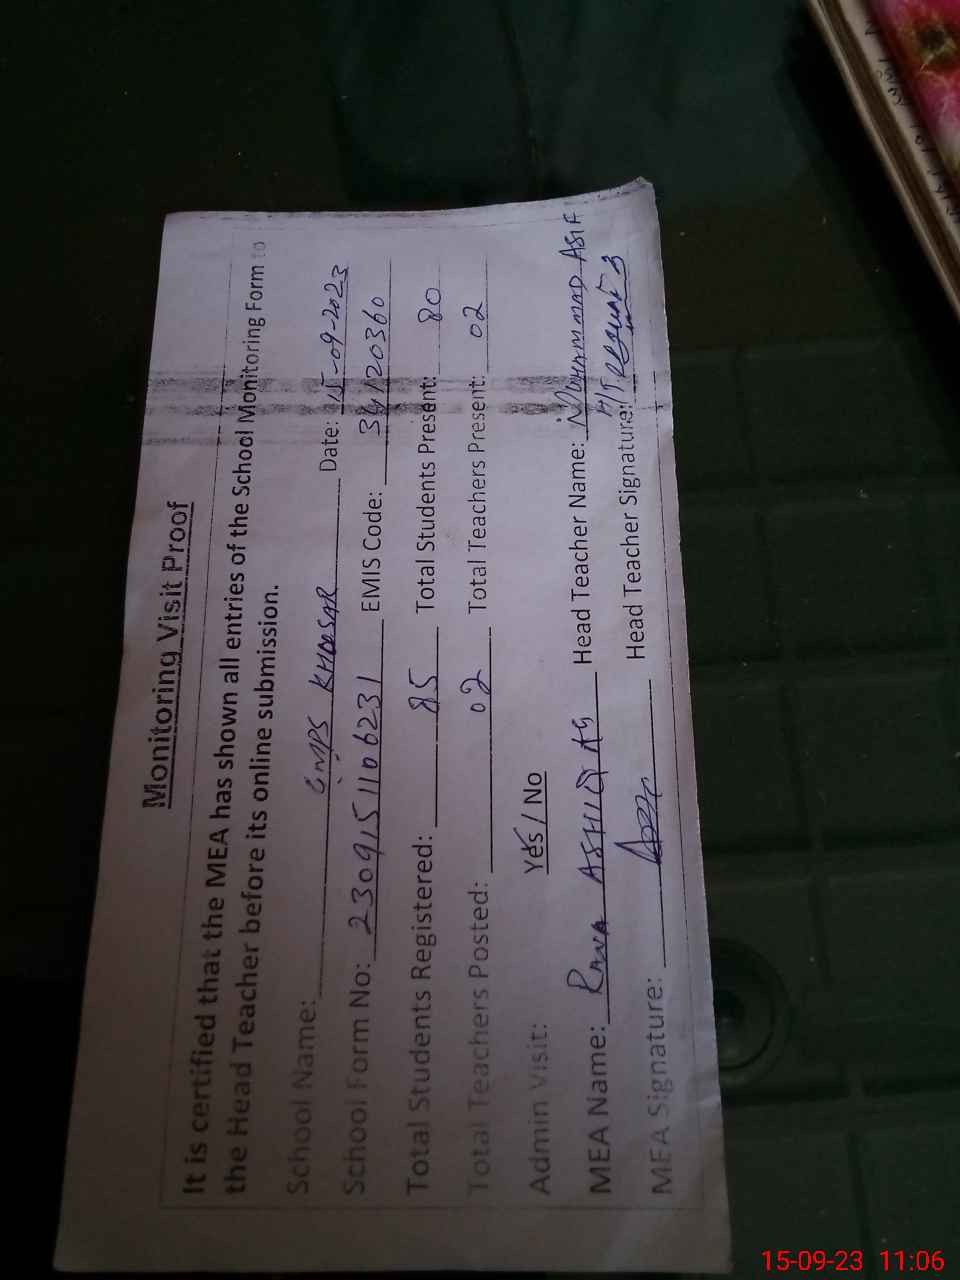 Monitoring Visit Proof
It is certified that the MEA has shown all entries of the School Monitoring Form to
the Head Teacher before its online submission.
School Name: GMPS KHOSAR Date: 15-09-2023
School Form No: 2309151106231 EMIS Code: 34120360
Total Students Registered: 85 Total Students Present: 80
Total Teachers Posted: 02 Total Teachers Present: 02
Admin Visit: Yes / No
MEA Name: RANA ASHIQ Head Teacher Name: MOHAMMAD ASIF
MEA Signature: Head Teacher Signature:
15-09-23 11:06